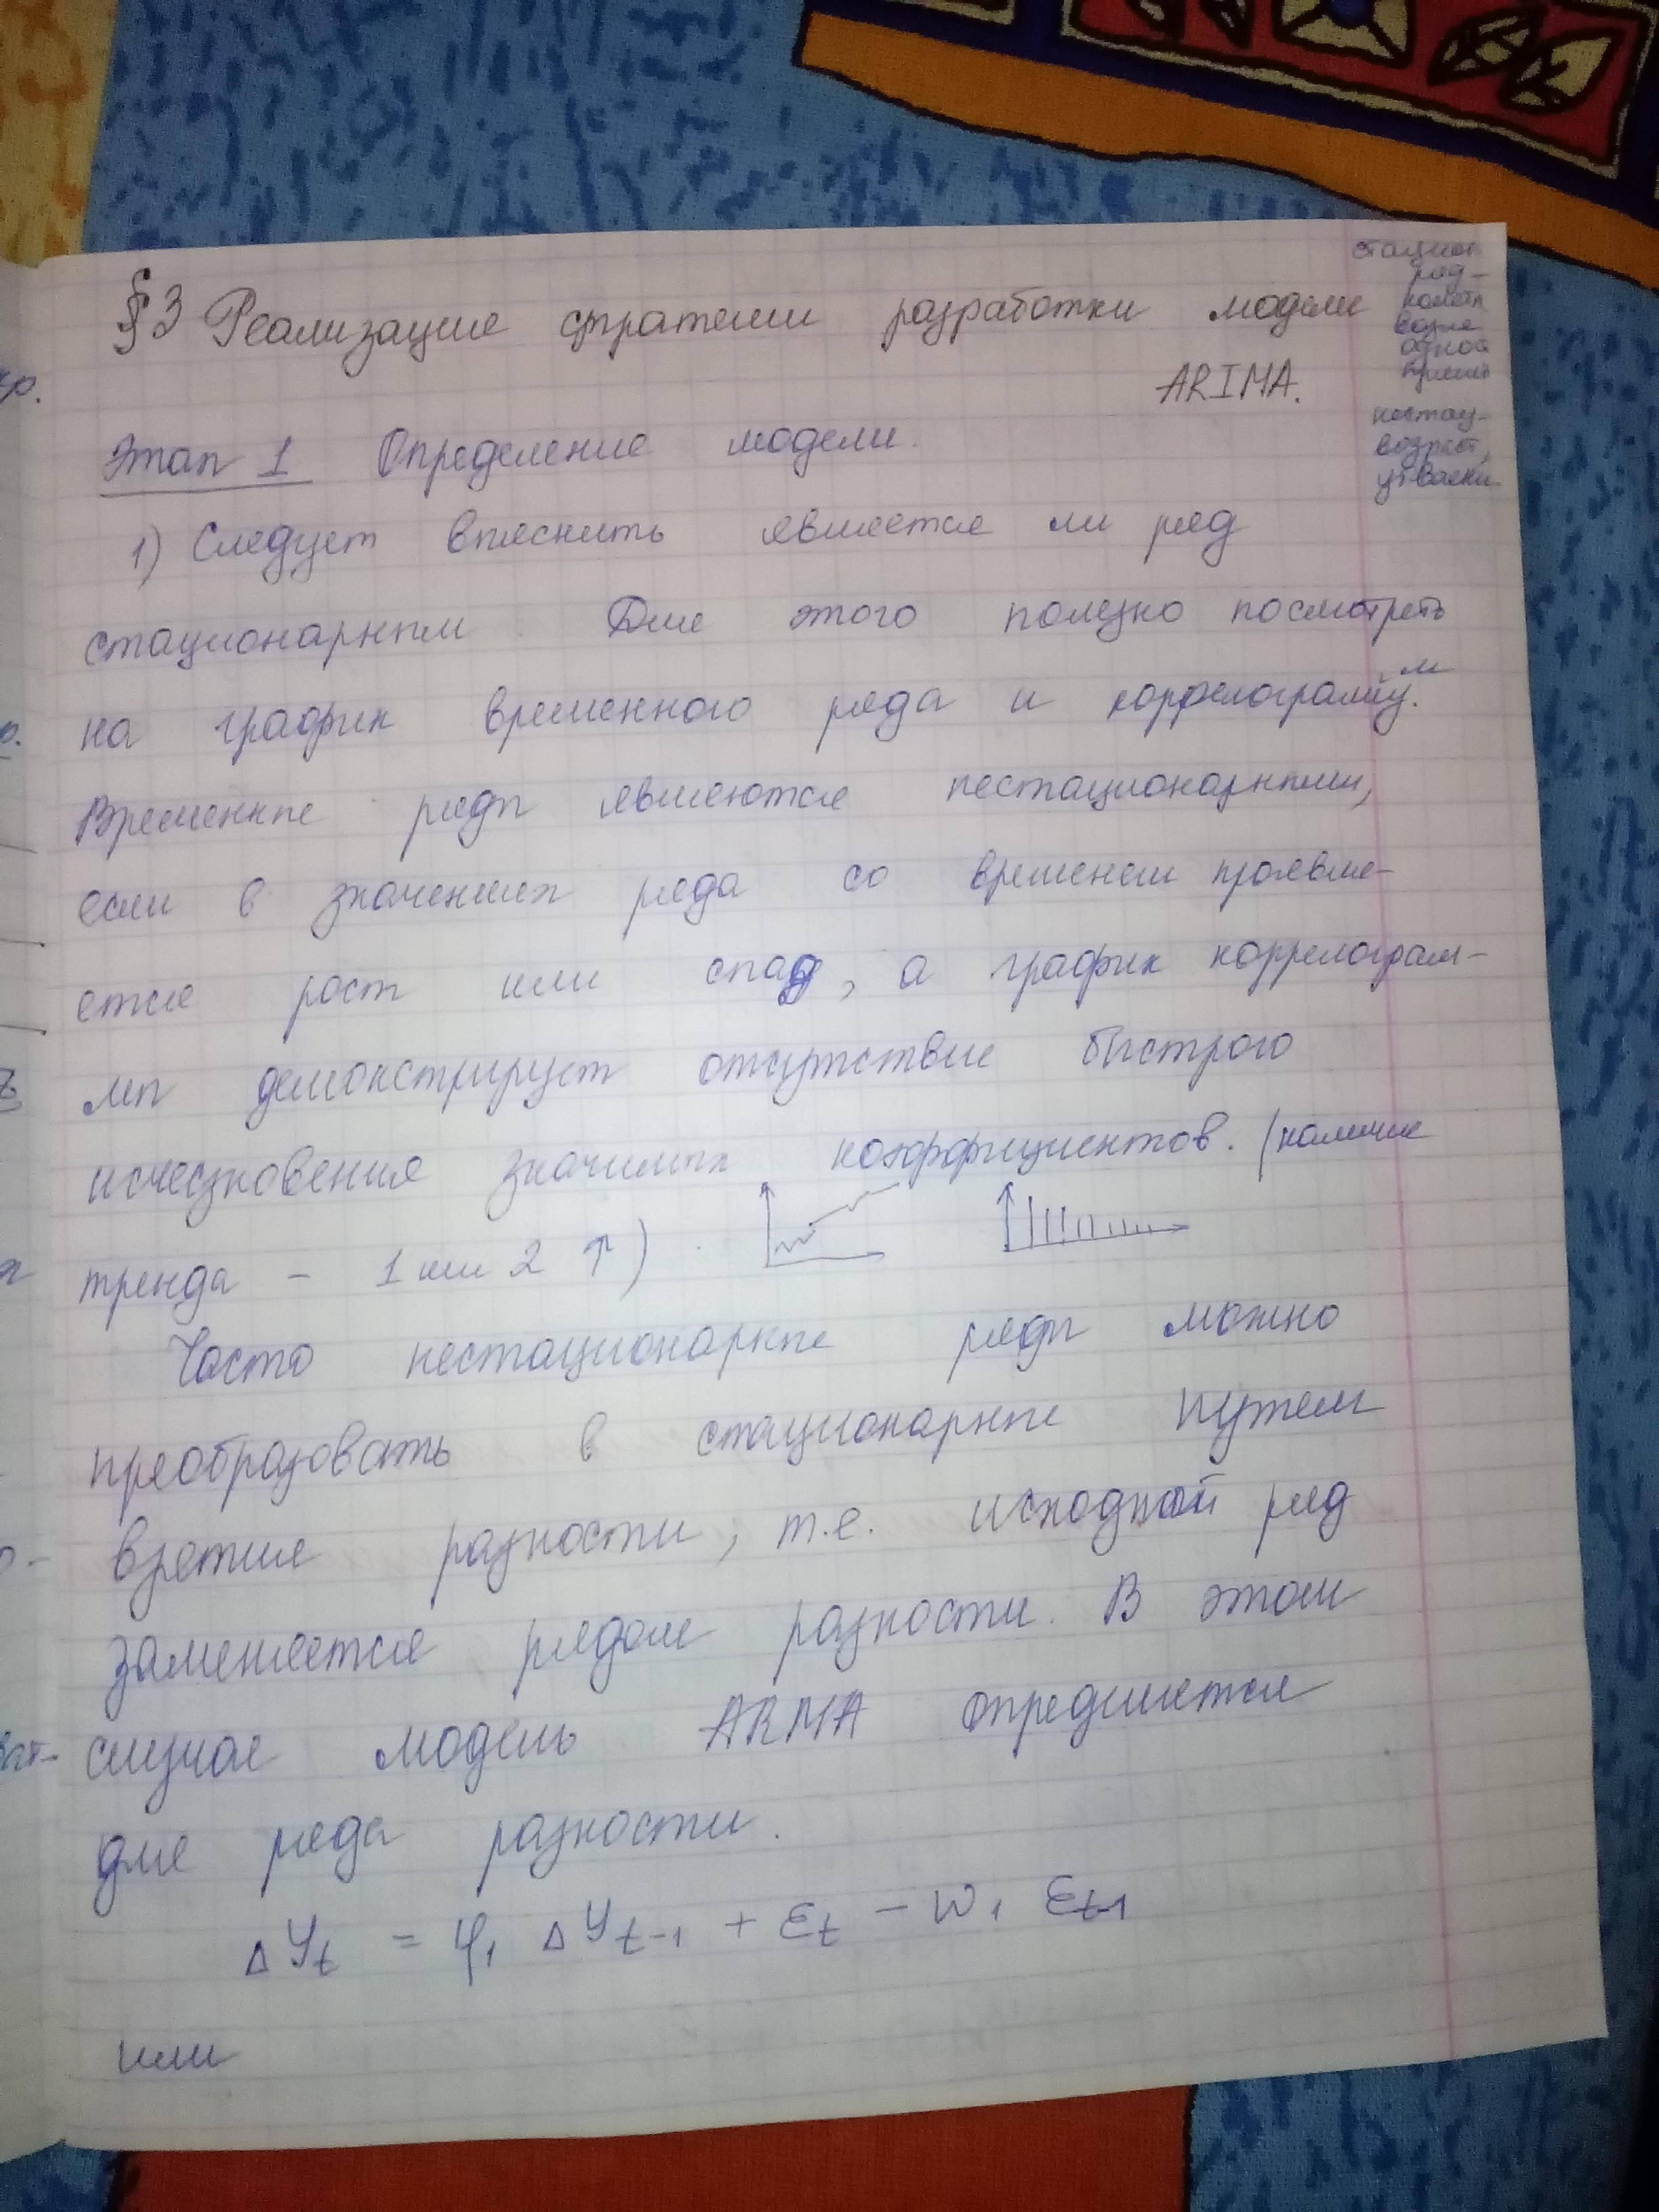 §3 Реализация стратегии разработки модели
ARIMA.
Этап 1 Определение модели.
1) Следует выяснить является ли ряд
стационарным. Для этого полезно посмотреть
на график временного ряда и коррелограмму.
Временные ряды являются нестационарными,
если в значениях ряда со временем проявля-
ется рост или спад, а график коррелограм-
мы демонстрирует отсутствие быстрого
исчезновения значимых коэффициентов. (наличие
тренда - 1 или 2 ↑)
Часто нестационарные ряды можно
преобразовать в стационарные путем
взятия разности, т.е. исходный ряд
заменяется рядом разности. В этом
случае модель ARMA определяется
для ряда разности.
Δyt = φ1 Δyt-1 + εt - w1 εt-1
или
стацион
ряд -
одной
нестац-
возраст,